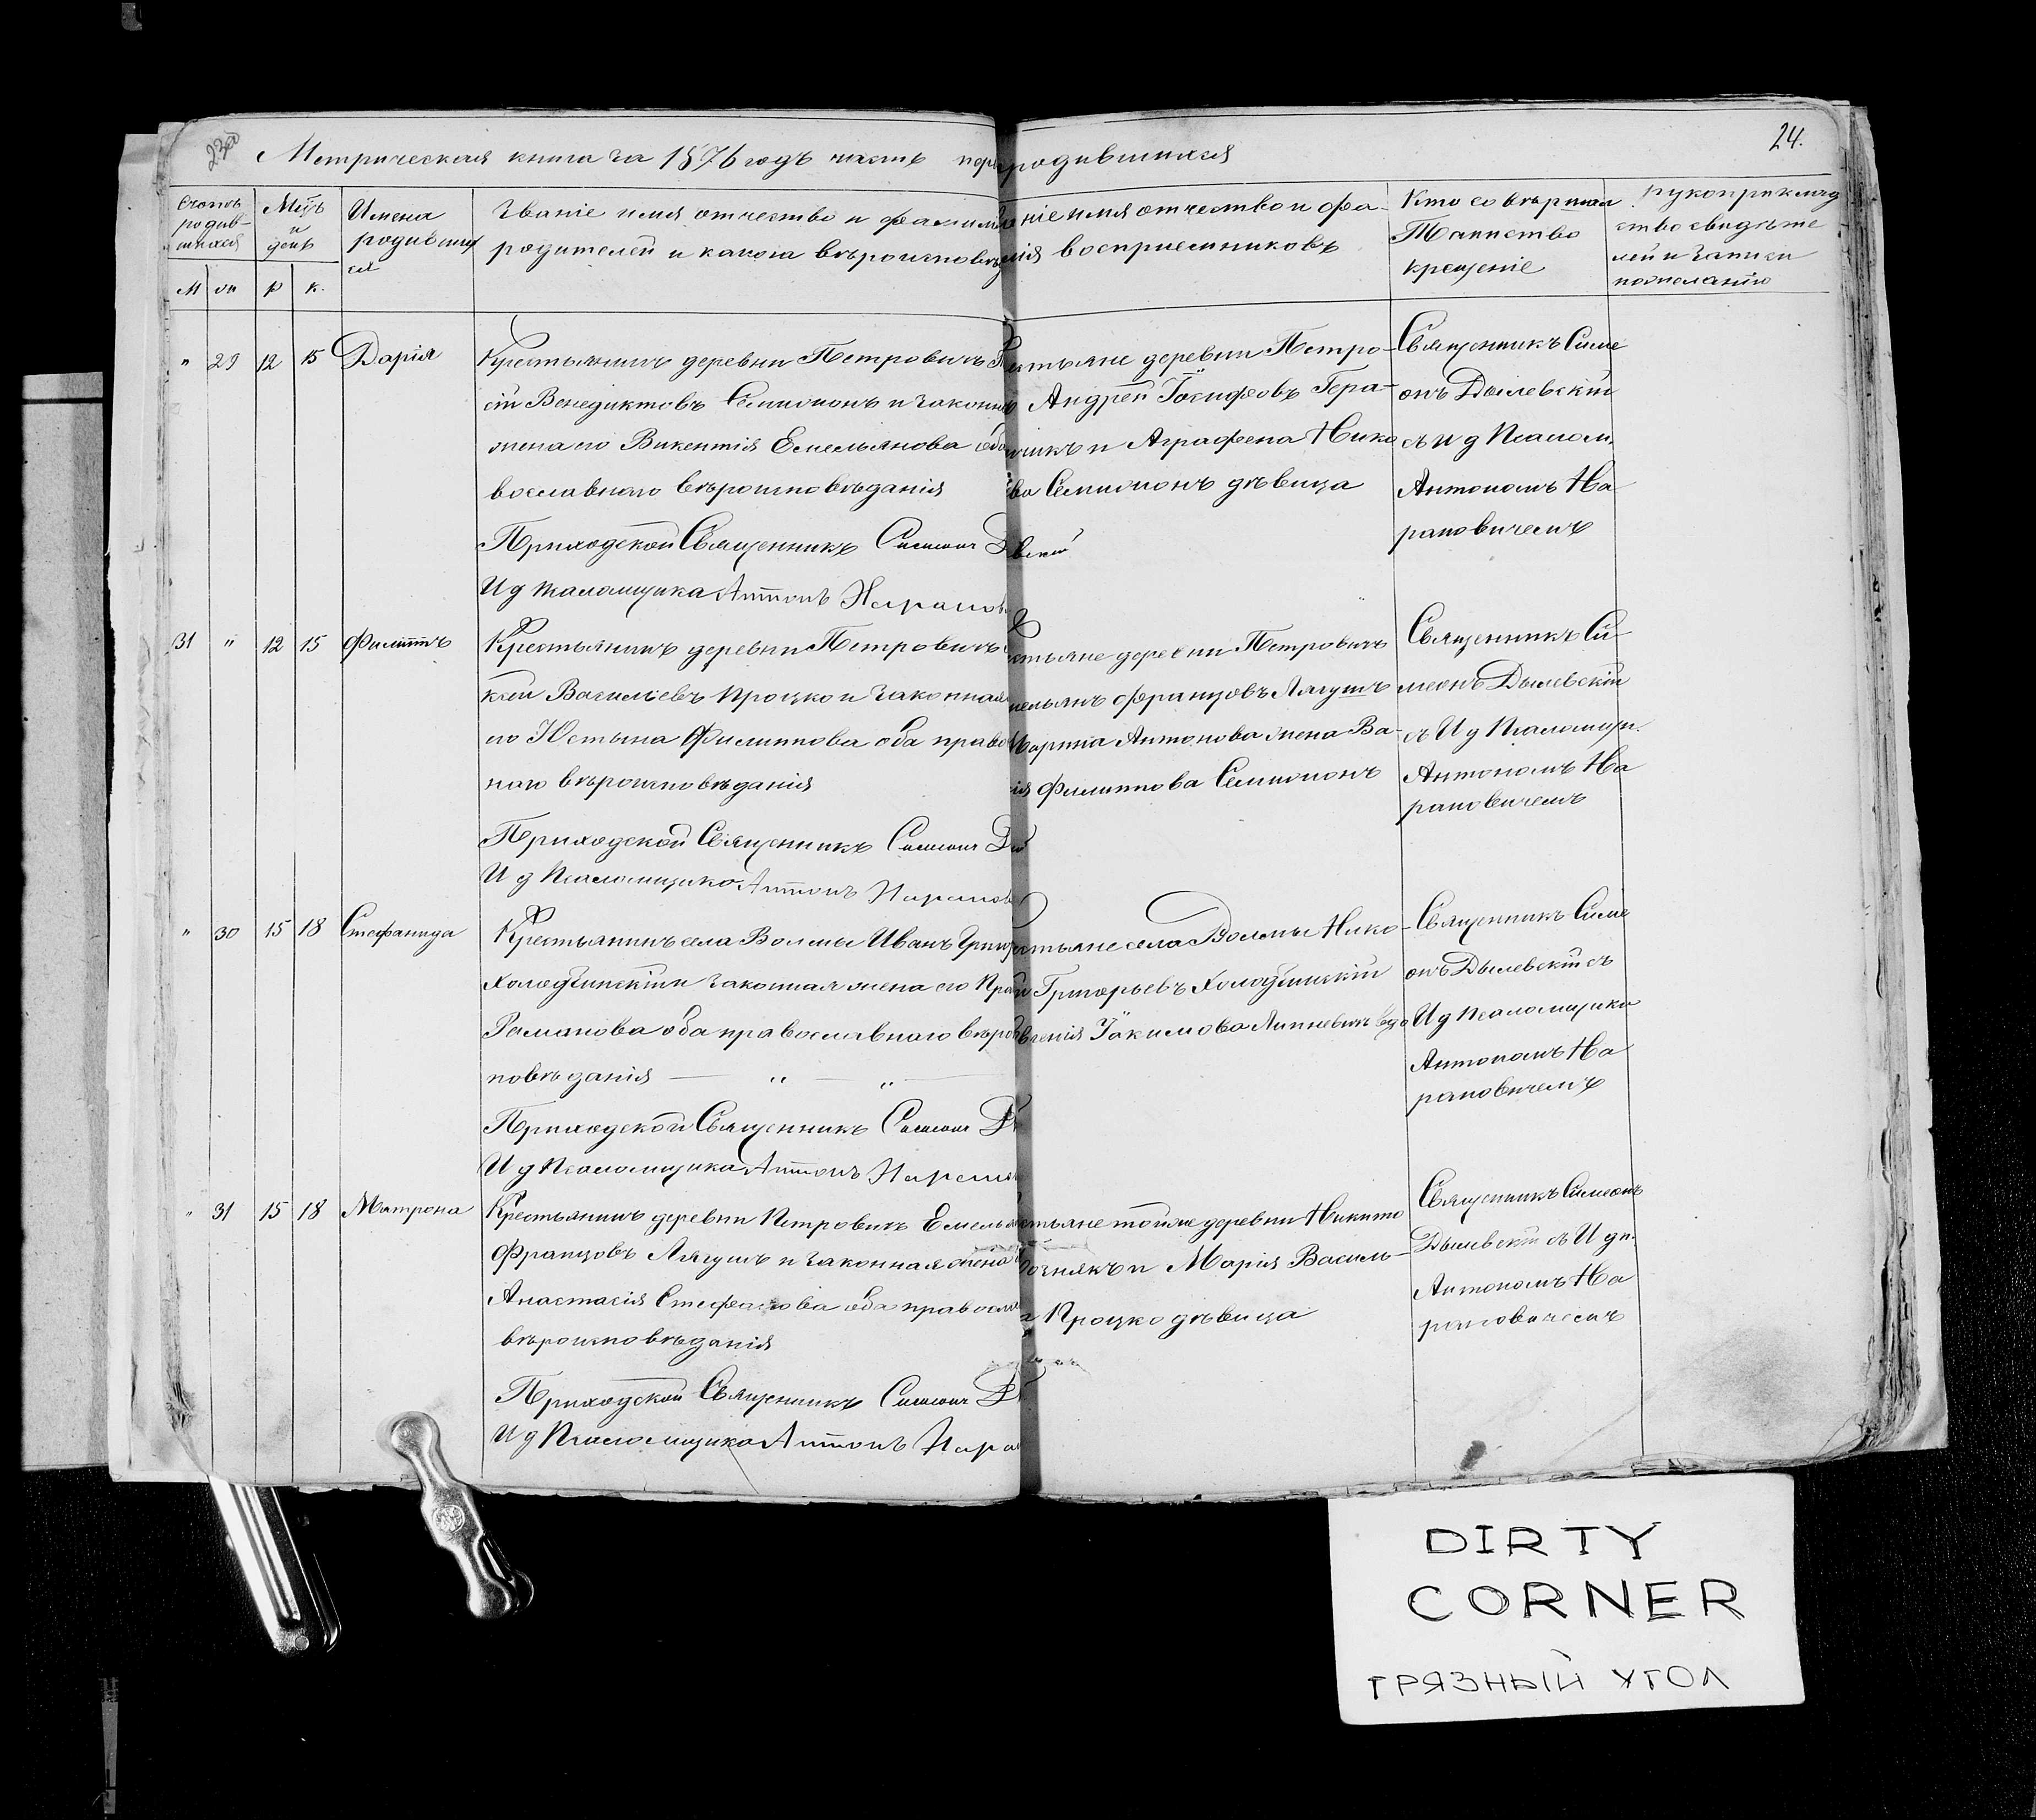 23об
Метрическая книга за 1876 годъ часть пер
родившихся
24.
Счетъ родив-шихся
Мѣсяцъ и день
Имена родившихся
Званіе имя отчество и фамилі
родителей и какого вѣроисповѣд
ніе имя отчество и фа-
мія воспріемниковъ
Кто совершал
Таинство
крещеніе
Рукоприклад
ство свидѣте
лей и записи
по желанію
м ж р к.
" 29 12 15 Дарія
Крестьянинъ деревни Петровичъ
сій Венедиктовъ Семпіонъ и законн
жена его Викентія Емельянова оба
вославнаго вѣроисповѣданія
Приходской Священникъ Симеон Д
И д псаломщика Антонъ Нарано
стьяне деревни Петро-
Андрей Іосифовъ Гера-
и Аграфена Нико
ва Семпіонъ дѣвица
вскій
Священникъ Симе
онъ Дылевскій
съ И д Псалом.
Антономъ На
рановичемъ
31 " 12 15 Филиппъ
Крестьянинъ деревни Петровичъ
ксѣй Васильевъ Процко и законная
его Юстына Филиппова оба право
наго вѣроисповѣданія
Приходской Священникъ Симеон Д
И д Псаломщика Антонъ Наранов
стьяне деревни Петровичъ
мельянъ Францовъ Лягушъ
Марина Антонова жена Ва-
ія Филиппова Семпіонъ
Священникъ Си-
меонъ Дылевскій
съ И д Псаломщи.
Антономъ На
рановичемъ
" 30 15 18 Стефанида
Крестьянинъ села Волмы Иванъ Григ
Холодинскій и законная жена его
Романова оба православнаго вѣро
повѣданія — " — " —
Приходской Священникъ Симеон Д
И д Псаломщика Антонъ Наран
стьяне села Волмы Нико-
Григорьевъ Холодинскій
вгенія Іакимова Липневичъ
Священникъ Симе
онъ Дылевскій съ
И д Псаломщика
Антономъ На
рановичемъ
" 31 15 18 Матрона
Крестьянинъ деревни Петровичъ Емелья
Францовъ Лягушъ и законная жена
Анастасія Стефанова оба правосла
вѣроисповѣданія
Приходской Священникъ Симеон Д
И д Псаломщика Антонъ Нара
стьяне тойже деревни Никито
и Марія Василь-
а Процко дѣвица
Священникъ Симеонъ
Дылевскій съ И д п.
Антономъ На
рановичемъ
DIRTY
CORNER
ГРЯЗНЫЙ УГОЛ